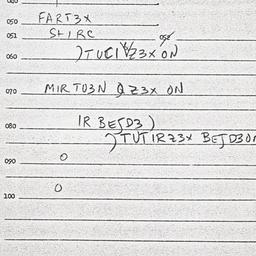 050 FART3X
051 SHIRC 052
060 )TUCIVZ3X ON
070 MIRTU3N QZ3X ON
080 IR BEJD3)
)TUTIRZ3X BEJD3O
090 O
100 O